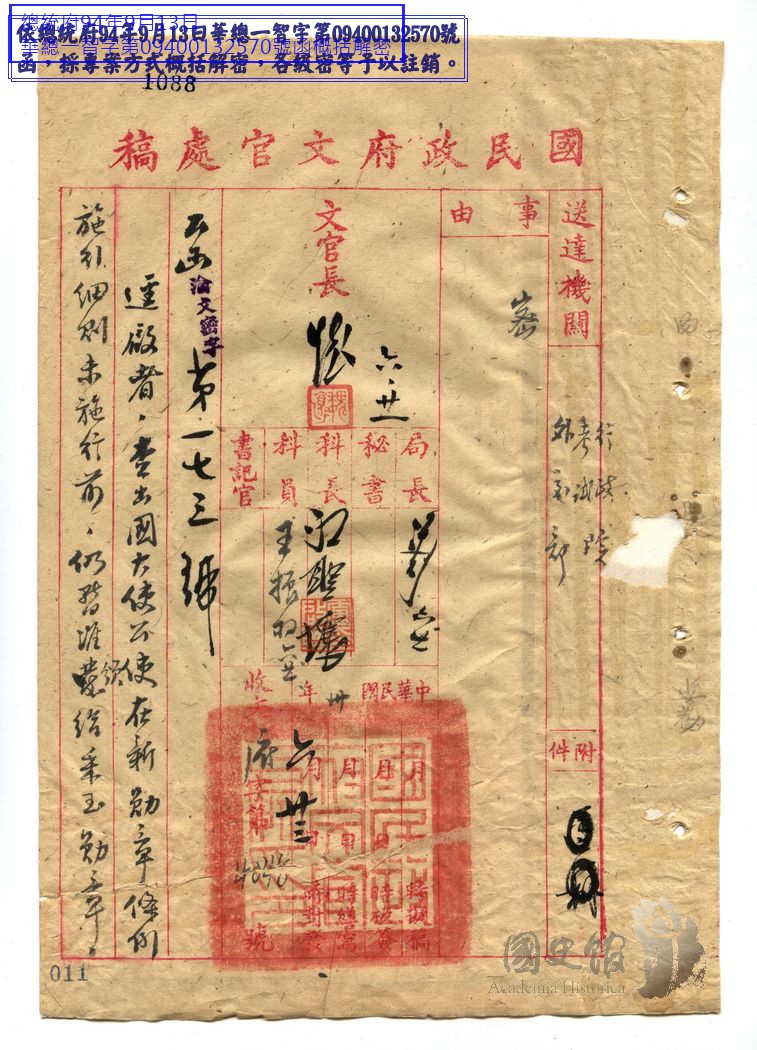 總統府94年9月13日
華總一智字第09400132570號函概括解密
依總統府94年9月13日華總一智字第09400132570號
函，採專案方式概括解密，各級密等予以註銷。
1088
國民政府文官處稿
送達機關
行政院
考試院
外交部
附件
事由
文官長
六、廿一
局長
秘書
科長
科員
書記官
王振
中華民國卅年
月 日 時擬稿
月 日 時核簽
月 日 時繕寫
六月廿三日 時封發
收文府字第
號
公函渝文密字第一七三號
逕啟者，查出國大使公使在新勛章條例
施行細則未施行前，仍暫准發給采玉勛章，
011
國史館
Academia Historica